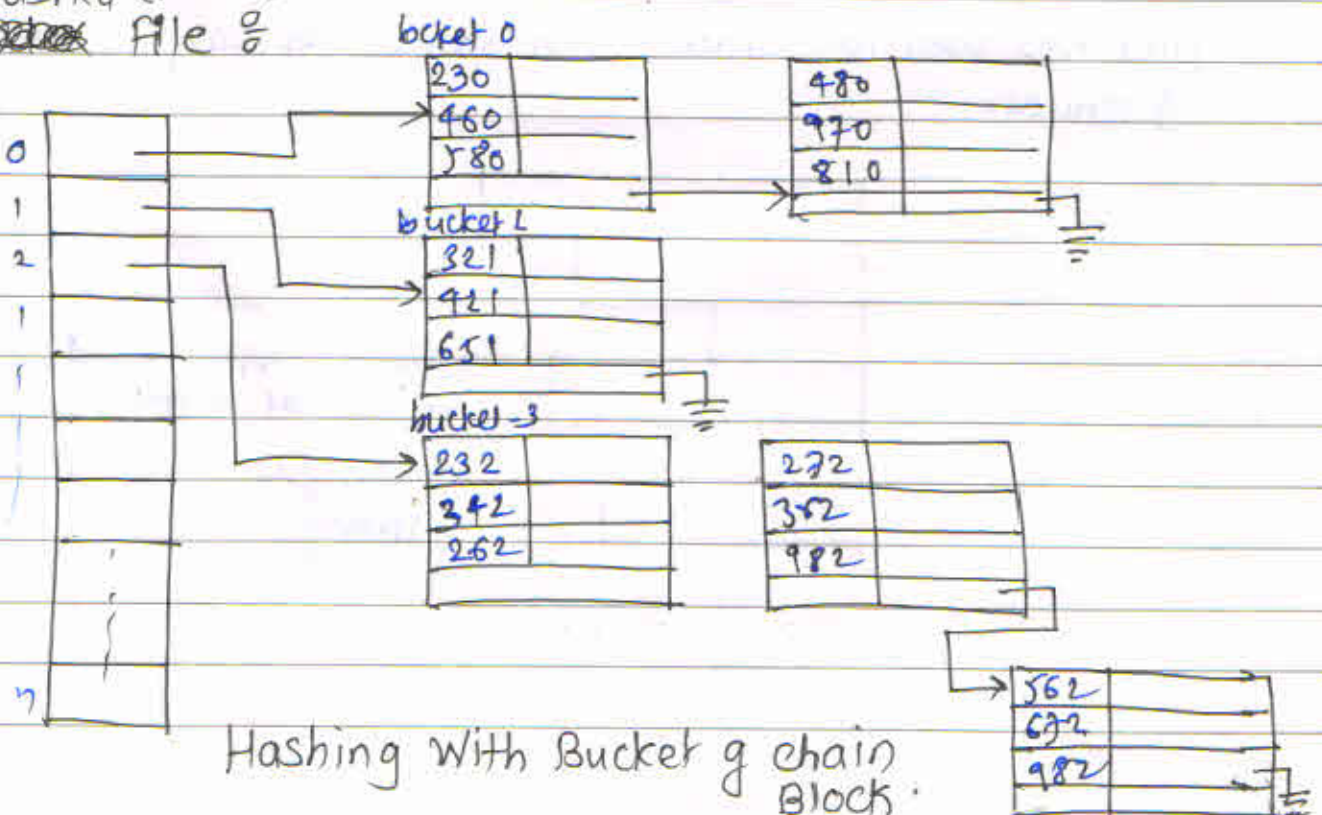 File :
bocket 0
230
460
580
480
970
810
0
1
2
n
bucket 1
321
421
651
bucket-3
232
342
262
272
352
982
562
672
982
Hashing With Bucket g chain
Block.